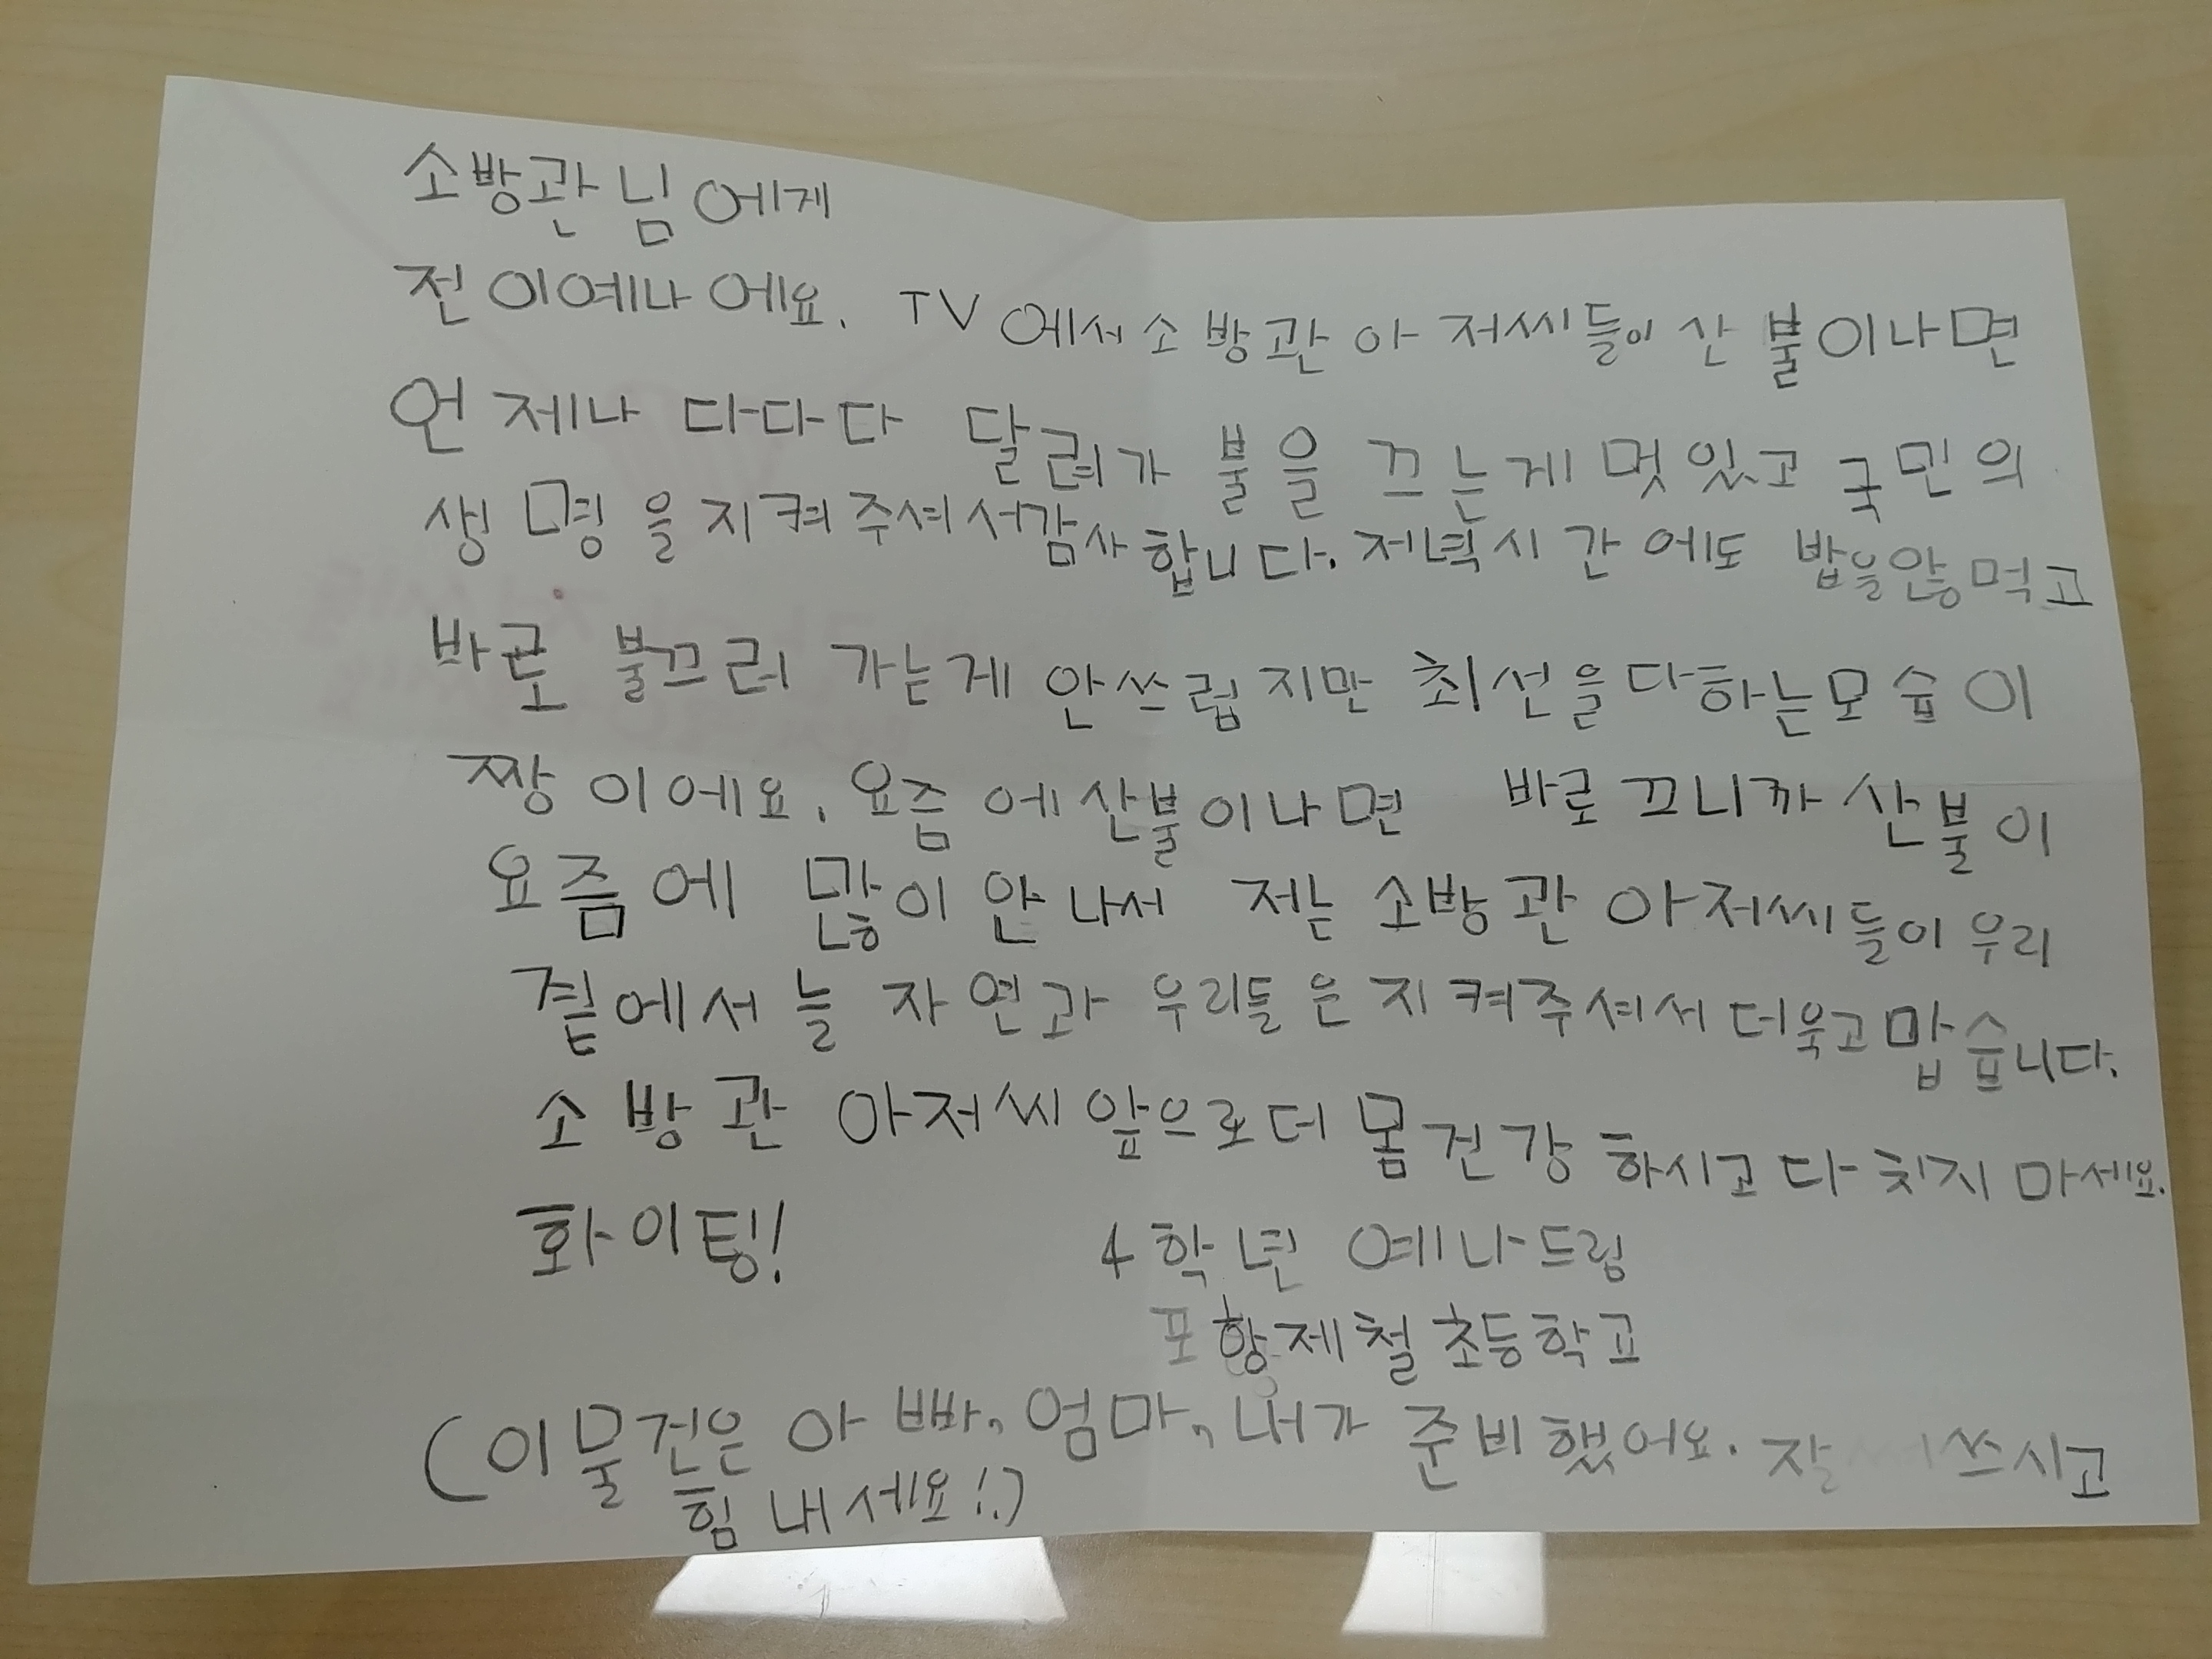 소방관님에게
전 이예나에요. TV에서 소방관 아저씨들이 산불이나면
언제나 다다다 달려가 불을 끄는게 멋있고 국민의
생명을 지켜주셔서감사합니다. 제녁시간에도 밥을않먹고
바로 불끄러 가는게 안쓰럽지만 최선을다하는모습이
짱이에요. 요즘에산불이나면 바로끄니까 산불이
요즘에 많이 안나서 저는 소방관 아저씨들이 우리
곁에서 늘 자연과 우리들은 지켜주셔서 더욱고맙습니다.
소방관 아저씨 앞으로더 몸건강하시고 다치지 마세요.
화이팅! 4학년 예나드림
포항제철초등학교
(이물건은 아빠, 엄마, 내가 준비했어요. 잘 쓰시고
힘내세요!:)